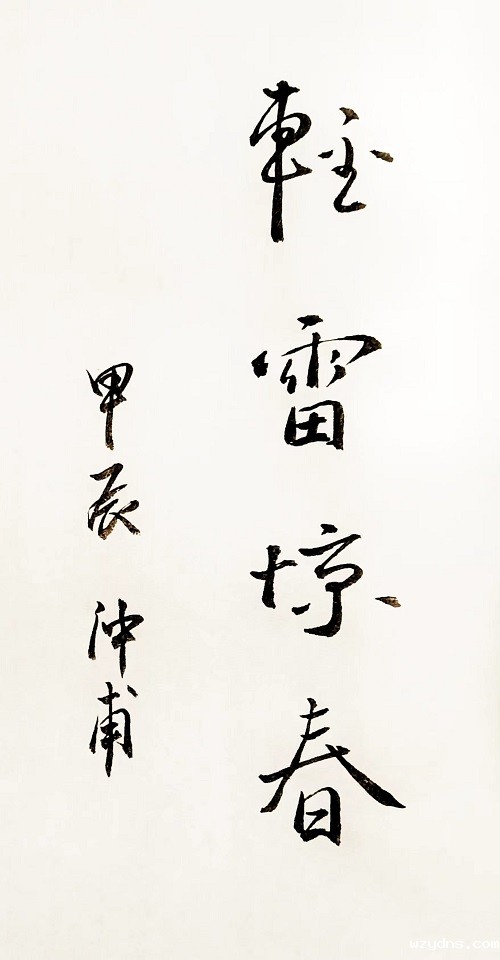 輕雷惊春
甲辰 沖甫
wzydns.com